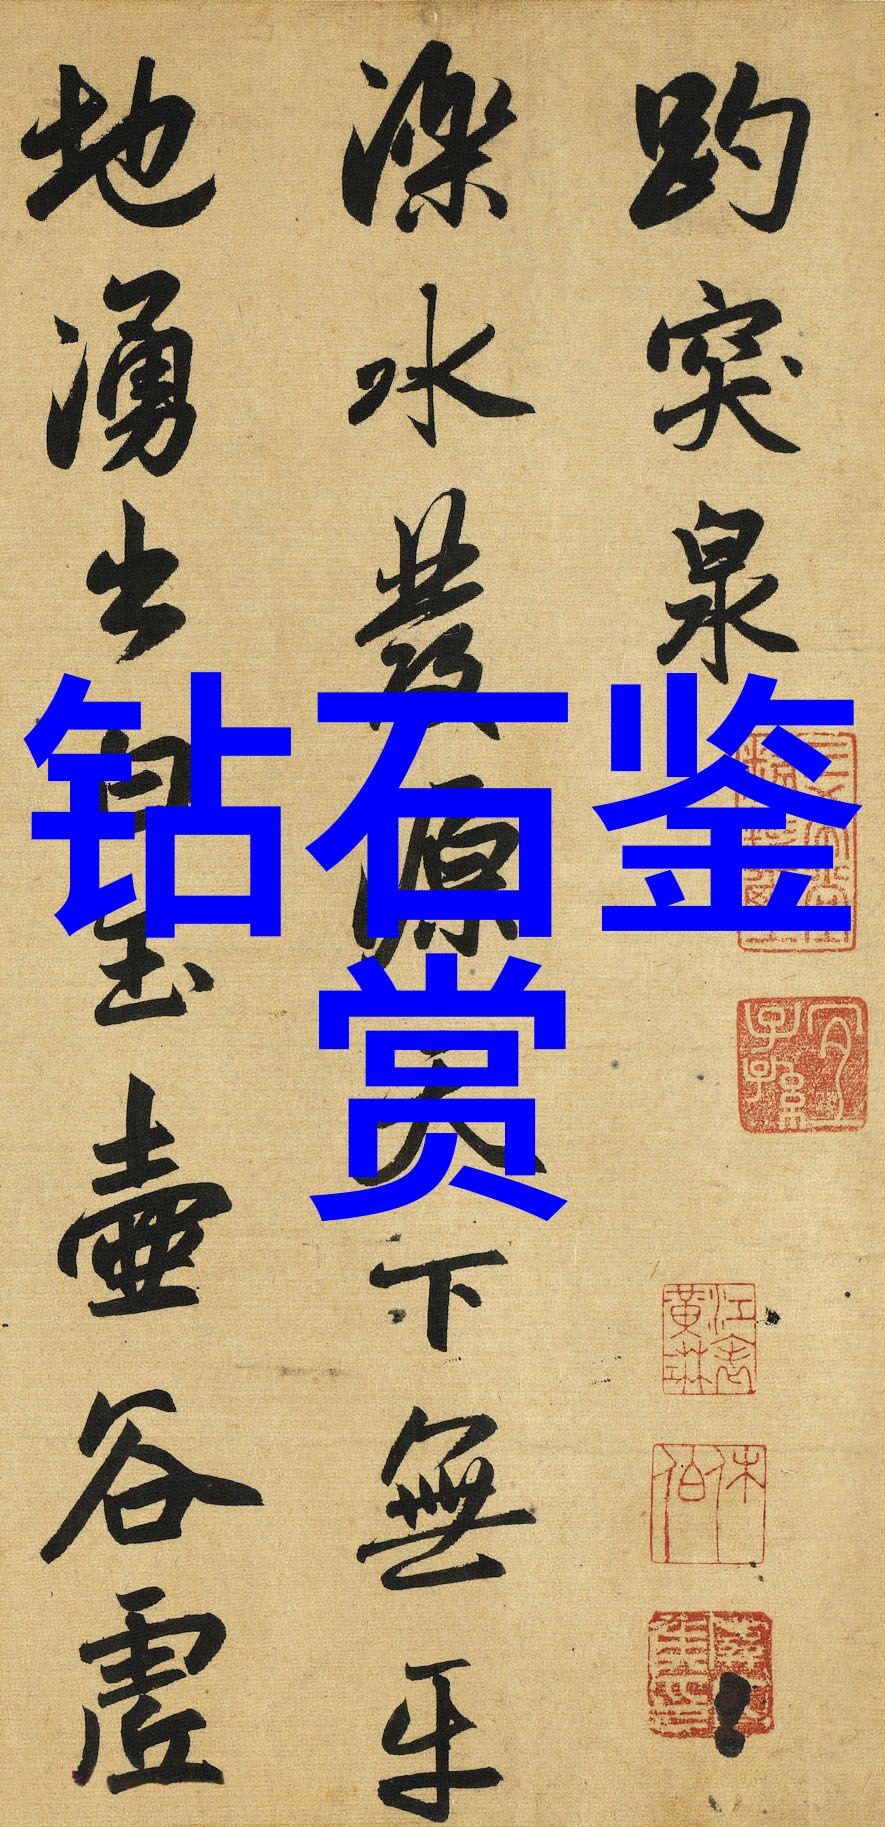 趵突泉
濼水發源天下無
平
地湧出白玉壺谷虛
钻石鉴
赏